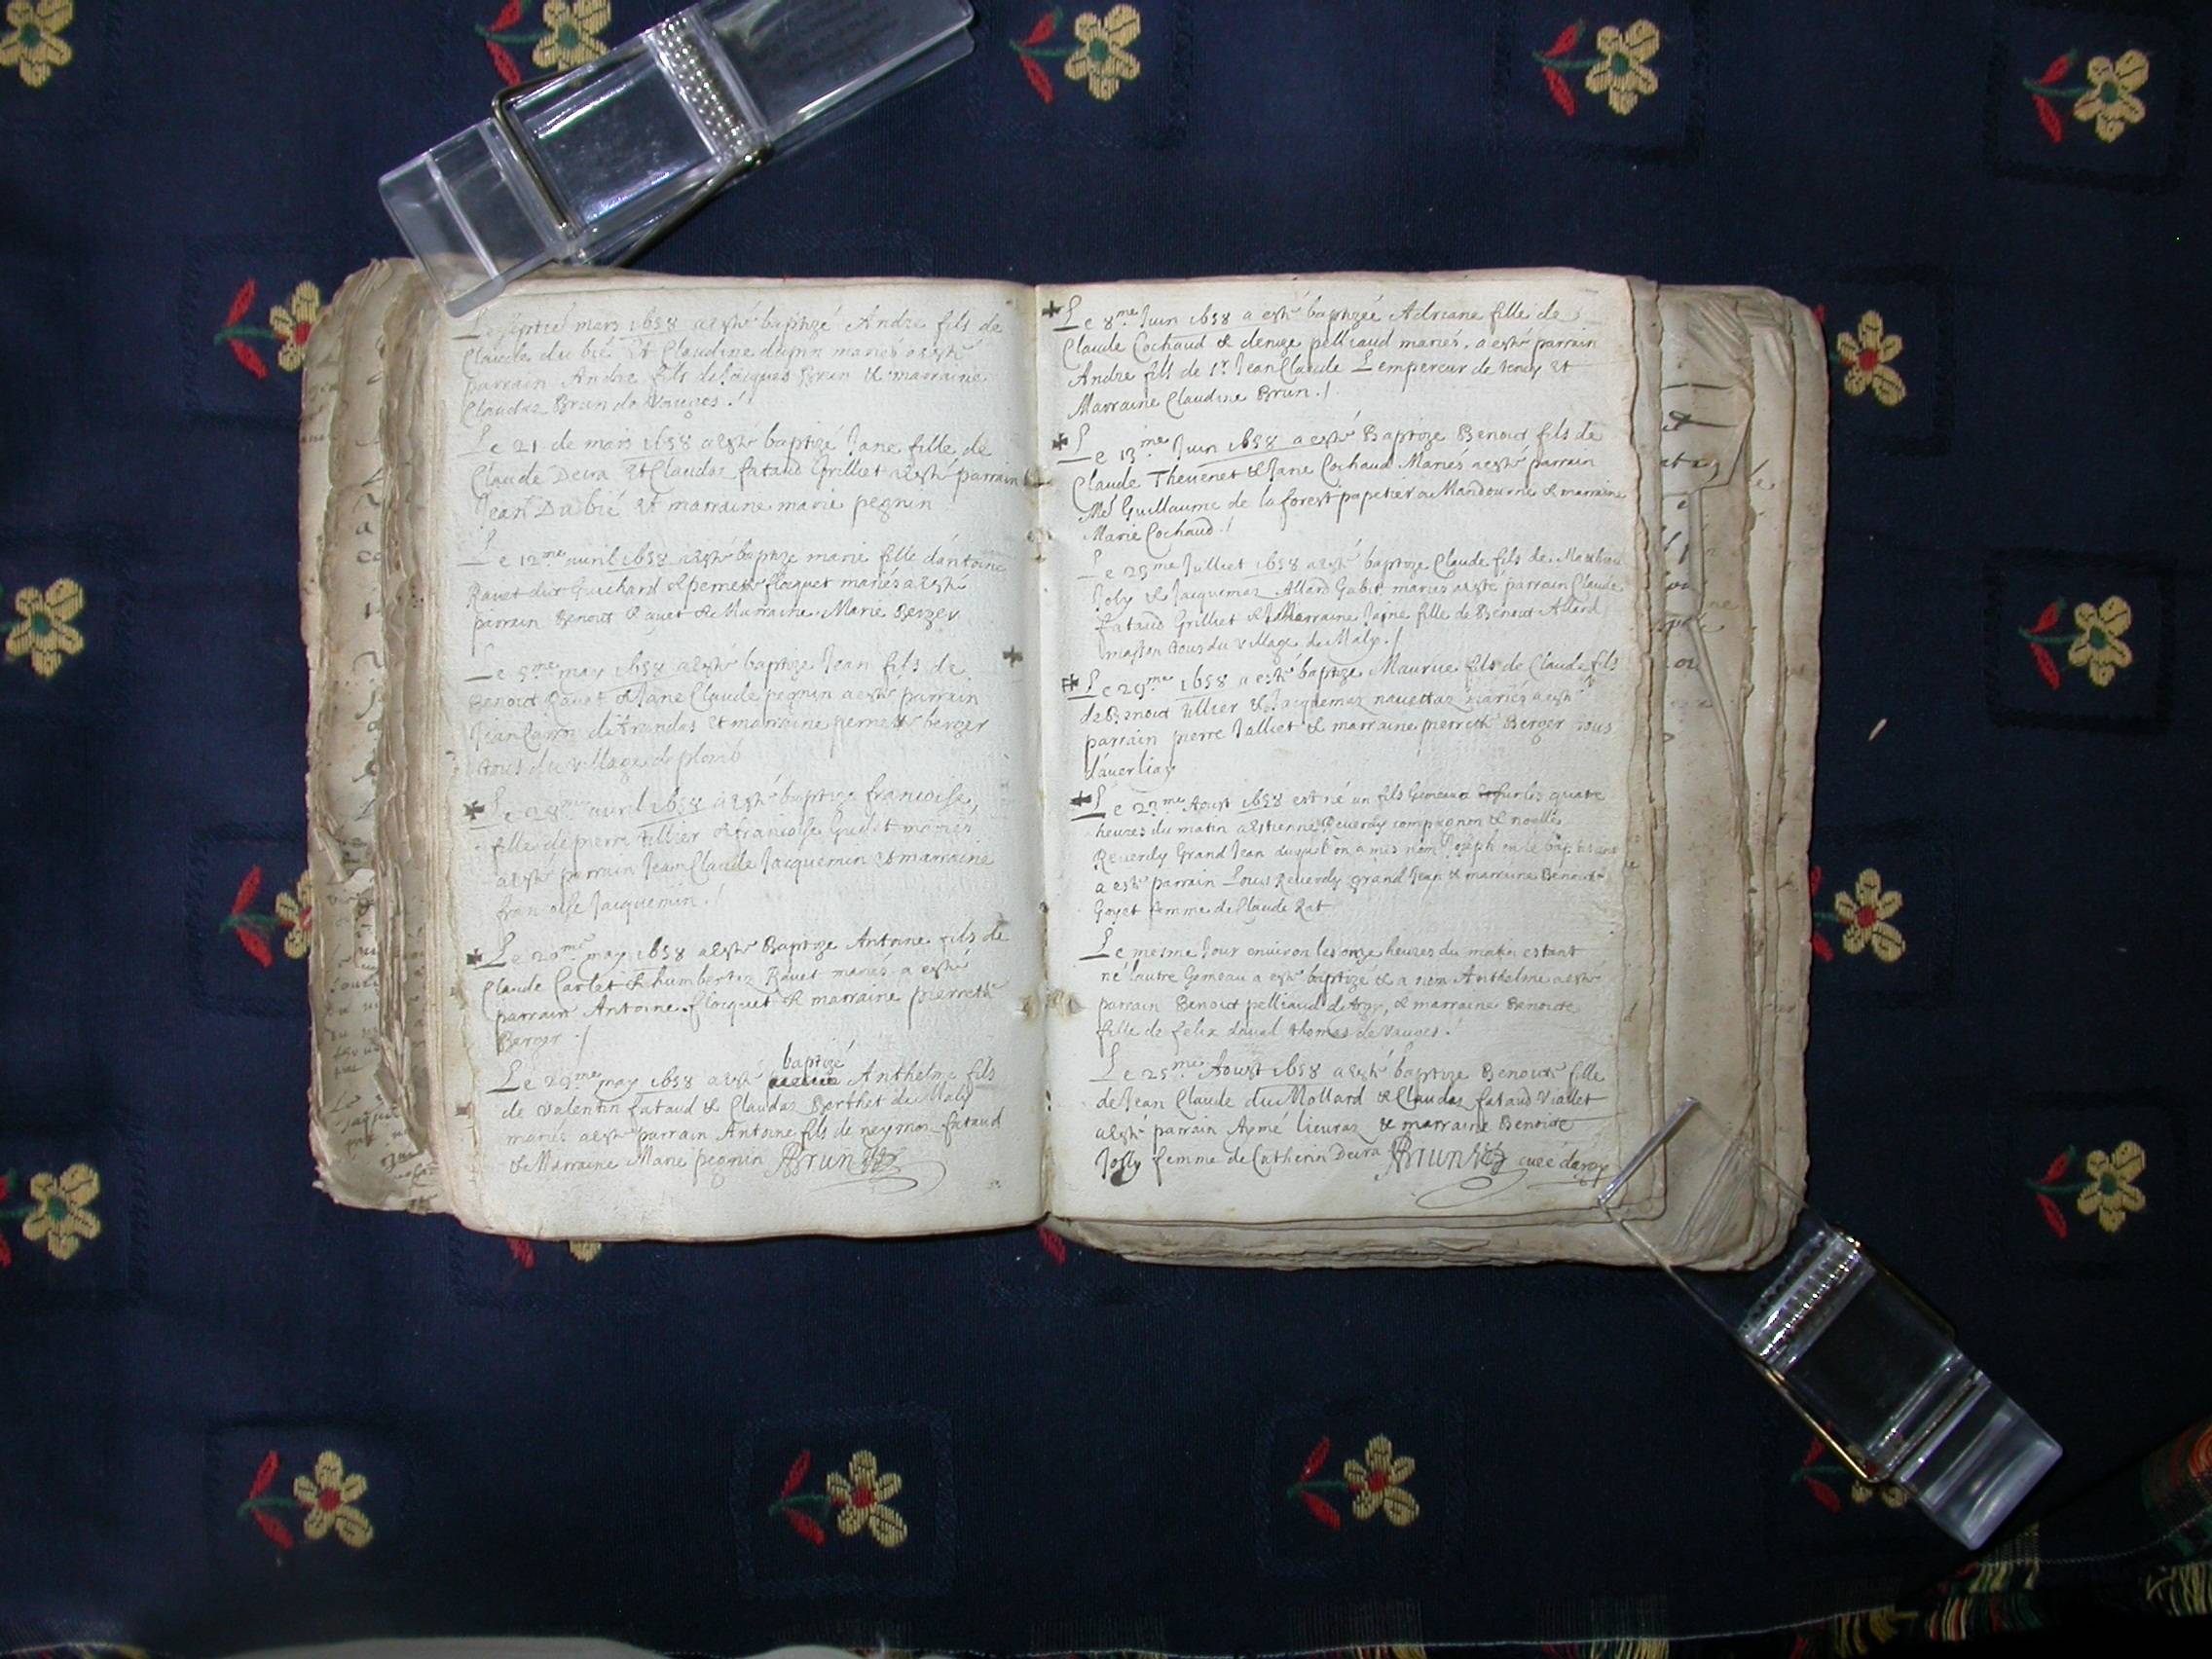 Le septie mars 1658 a esté baptizé Andre fils de
Claude du bié Et Claudine dupin mariés a esté
parrain Andre fils de Jacques Brun & marraine
Claudaz Brun de Vauges./
Le 21 de mars 1658 a esté baptizé Jane fille de
Claude Deira Et Claudaz fataud Grilliet a esté parrain
Jean Dubié Et marraine marie pegnin
Le 12me auril 1658 a esté baptize marie fille dantoine
Rauet dit Guichard & pernette flocquet mariés a esté
parrain Benoit Rauet & Marraine Marie Berger
Le 5me may 1658 a esté baptize Jean fils de
Benoit Rauet & Jane Claude pegnin a esté parrain
Jean d'Arandas Et marraine pernette berger
tous du village de plomb
Le 28me auril 1658 a esté baptize francoise
fille de pierre tillier & francoise Gudet mariés
a esté parrain Jean Claude Jacquemin & marraine
francoise Jacquemin./
Le 20me may 1658 a esté Baptize Antoine fils de
Claude Carlet & humbertaz Rauet mariés a esté
parrain Antoine flocquet & marraine pierrette
Berger./
baptizé
Le 29me may 1658 a esté Anthelme fils
de Valentin fataud & Claudaz Berthet de Maly
mariés a esté parrain Antoine fils de neymoz fataud
& Marraine Marie pegnin Brun
Le 8me Juin 1658 a esté baptizée Adriane fille de
Claude Cochaud & denize pelliaud mariés. a esté parrain
Andre fils de Sr Jean Claude Lempereur de tenay Et
Marraine Claudine Brun./
Le 13me Juin 1658 a esté Baptize Benoit fils de
Claude Theuenet & Jane Cochaud Mariés a esté parrain
Me Guillaume de la forest papetier a Mandourne & marraine
Marie Cochaud./
Le 25me Juilliet 1658 a esté baptize Claude fils de
Joly & Jacquemaz Allard Gubit mariés a esté parrain Claude
fataud Grilliet & Marraine Jajne fille de Benoit Allard
masson tous du village de Maly./
Le 29me 1658 a esté baptize Maurice fils de Claude fils
de Benoit tillier & Jacquemaz nauettaz mariés a esté
parrain pierre Jalliet & marraine pierrette Berger tous
dauerliaz
Le 22me Aoust 1658 est né un fils Gemeau sur les quatre
heures du matin a Estienne Reuerdy compagnon & noelle
Reuerdy Grand Jean duquel on a mis nom Joseph en le baptisant
a esté parrain Louis Reuerdy grand Jean & marraine Benoite
Goyet femme de Claude Rat
Le mesme Jour enuiron les onze heures du matin estant
né lautre Gemeau a esté baptizé & a nom Anthelme a esté
parrain Benoit pelliaud de Argy, & marraine Benoite
fille de felix dual thomes de Vauges./
Le 25me Aoust 1658 a esté baptize Benoite fille
de Jean Claude du Mollard & Claudaz fataud Viallet
a esté parrain Aymé lieuraz & marraine Benoite
Jolly femme de Catherin Deira Brun curé dargy